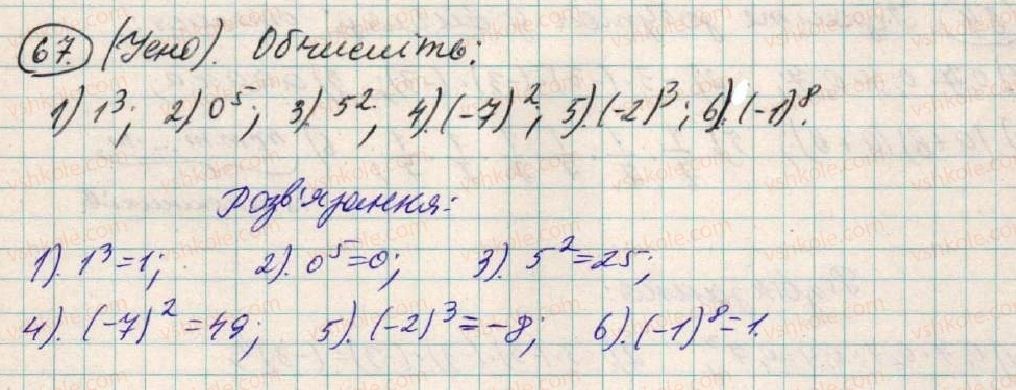 67. (Усно). Обчисліть:
1) 1³; 2) 0⁵; 3). 5²; 4). (-7)²; 5). (-2)³; 6). (-1)⁸.
Розв'язання:
1). 1³=1; 2). 0⁵=0; 3). 5²=25;
4). (-7)²=49; 5). (-2)³=-8; 6). (-1)⁸=1.